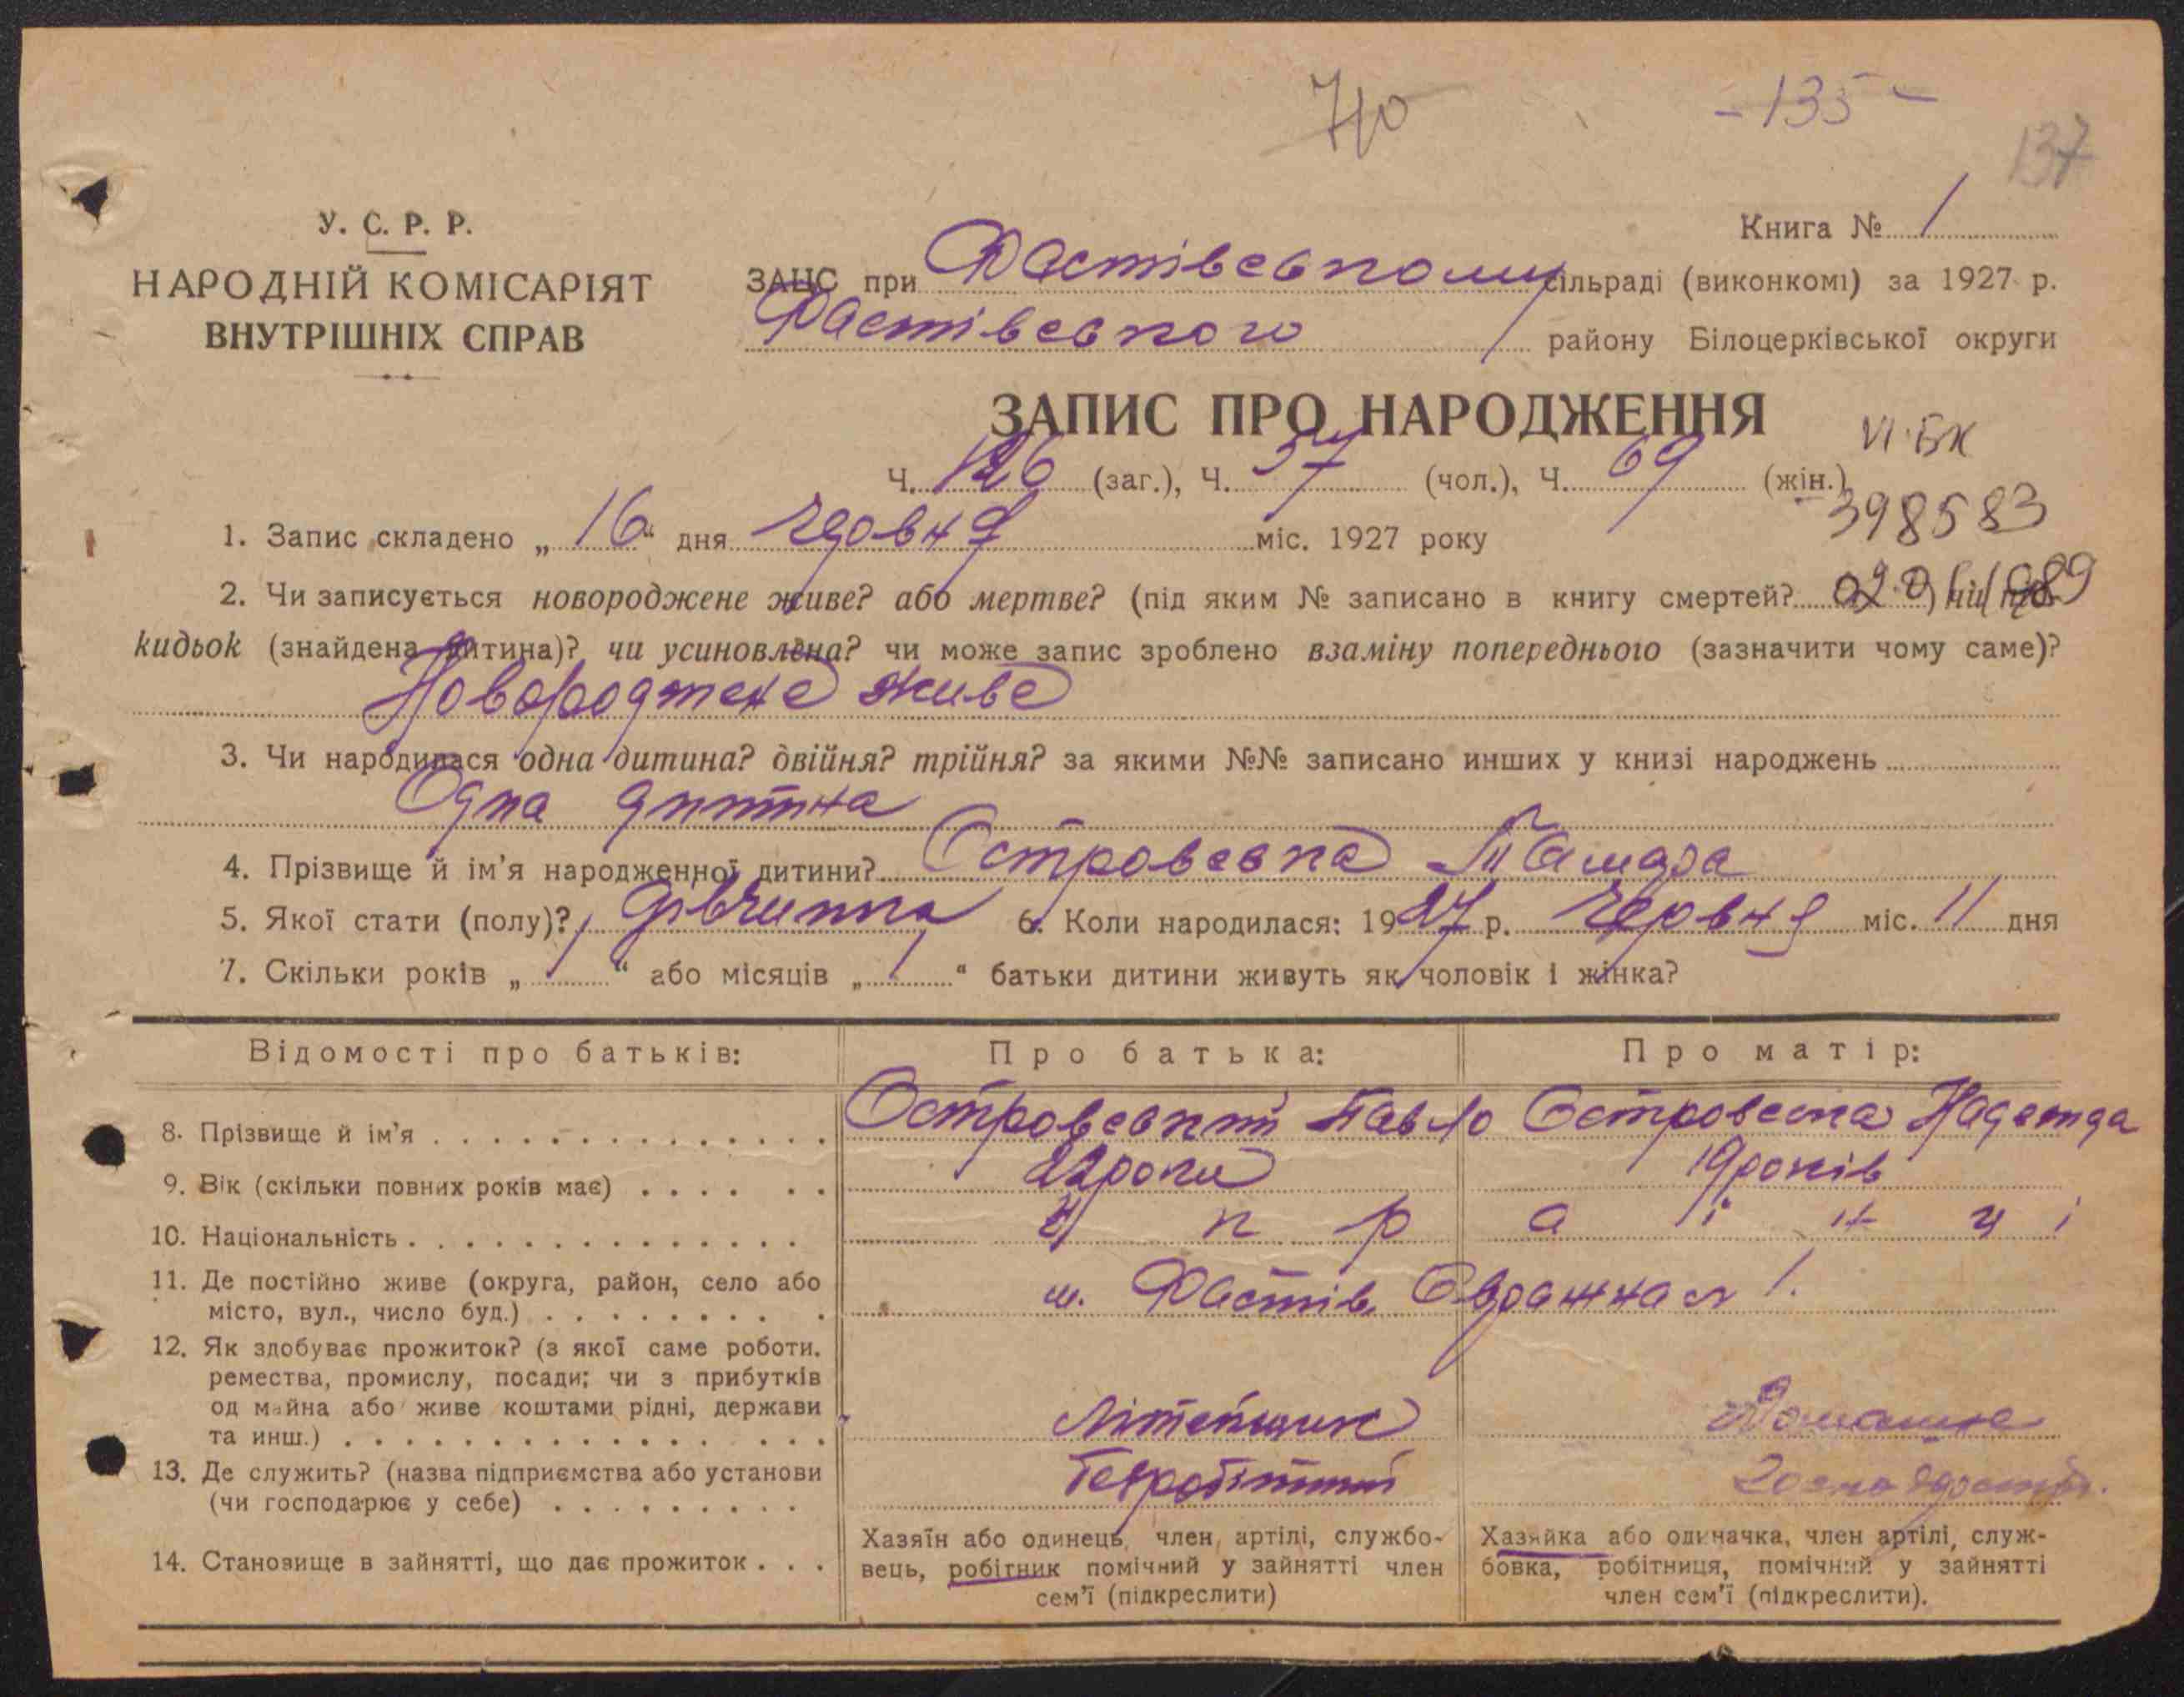 710
- 135 -
137
У. С. Р. Р.
НАРОДНІЙ КОМІСАРІЯТ
ВНУТРІШНІХ СПРАВ
Книга № 1
ЗАЦС при Фастівському сільраді (виконкомі) за 1927 р.
Фастівського району Білоцерківської округи
ЗАПИС ПРО НАРОДЖЕННЯ
VI-БК
Ч. 126 (заг.), Ч. 57 (чол.), Ч. 69 (жін.)
398583
1. Запис складено „ 16 " дня червня міс. 1927 року
2. Чи записується новороджене живе? або мертве? (під яким № записано в книгу смертей? ) чи під-
кидьок (знайдена дитина)? чи усиновлена? чи може запис зроблено взаміну попереднього (зазначити чому саме)?
Новороджене живе
3. Чи народилася одна дитина? двійня? трійня? за якими №№ записано инших у книзі народжень
Одна дитина
4. Прізвище й ім'я народженної дитини? Островська Тамара
5. Якої стати (полу)? Дівчинка 6. Коли народилася: 1927 р. Червня міс. 11 дня
7. Скільки років „ / " або місяців „ / " батьки дитини живуть як чоловік і жінка?
Відомості про батьків: Про батька: Про матір:
8. Прізвище й ім'я Островський Павло Островська Надежда
9. Вік (скільки повних років має) 22 роки 19 років
10. Національність У к р а ї н ц і
11. Де постійно живе (округа, район, село або
місто, вул., число буд.) м. Фастів Овражная 1.
12. Як здобуває прожиток? (з якої саме роботи,
ремества, промислу, посади; чи з прибутків
од майна або живе коштами рідні, держави
та инш.) Літейщик Домашнє
13. Де служить? (назва підприємства або установи
(чи господарює у себе) Безробітний господарство.
14. Становище в зайнятті, що дає прожиток
Хазяїн або одинець, член артілі, службо-
вець, робітник помічний у зайнятті член
сем'ї (підкреслити)
Хазяйка або одиначка, член артілі, служ-
бовка, робітниця, помічний у зайнятті
член сем'ї (підкреслити).